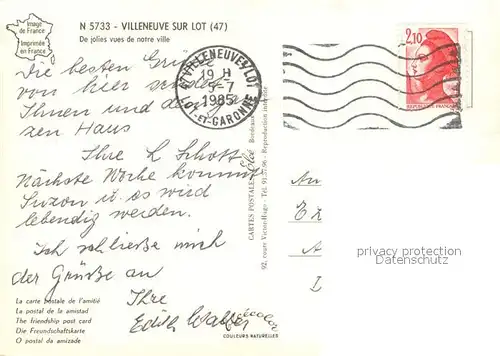 Image
de France
Imprimée
en France
N 5733 - VILLENEUVE SUR LOT (47)
De jolies vues de notre ville
Die besten Grüße
von hier sendet
Ihnen und die gan
zen Haus
Ihre L Schott
Nächste Woche kommt
Suzon u. es wird
lebendig werden.
Ich schließe mich
der Grüße an
Ihre
Edith Walter
47 VILLENEUVE S/ LOT
19 H
5-7
1985
LOT-ET-GARONNE
2,10
REPUBLIQUE FRANÇAISE
CARTES POSTALES
92, cours Victor-Hugo - Tél. 91.57.96 - Reproduction interdite
Bordeaux
La carte postale de l'amitié
La postal de la amistad
The friendship post card
Die Freundschaftskarte
O postal da amizade
COULEURS NATURELLES
privacy protection
veikkos.com